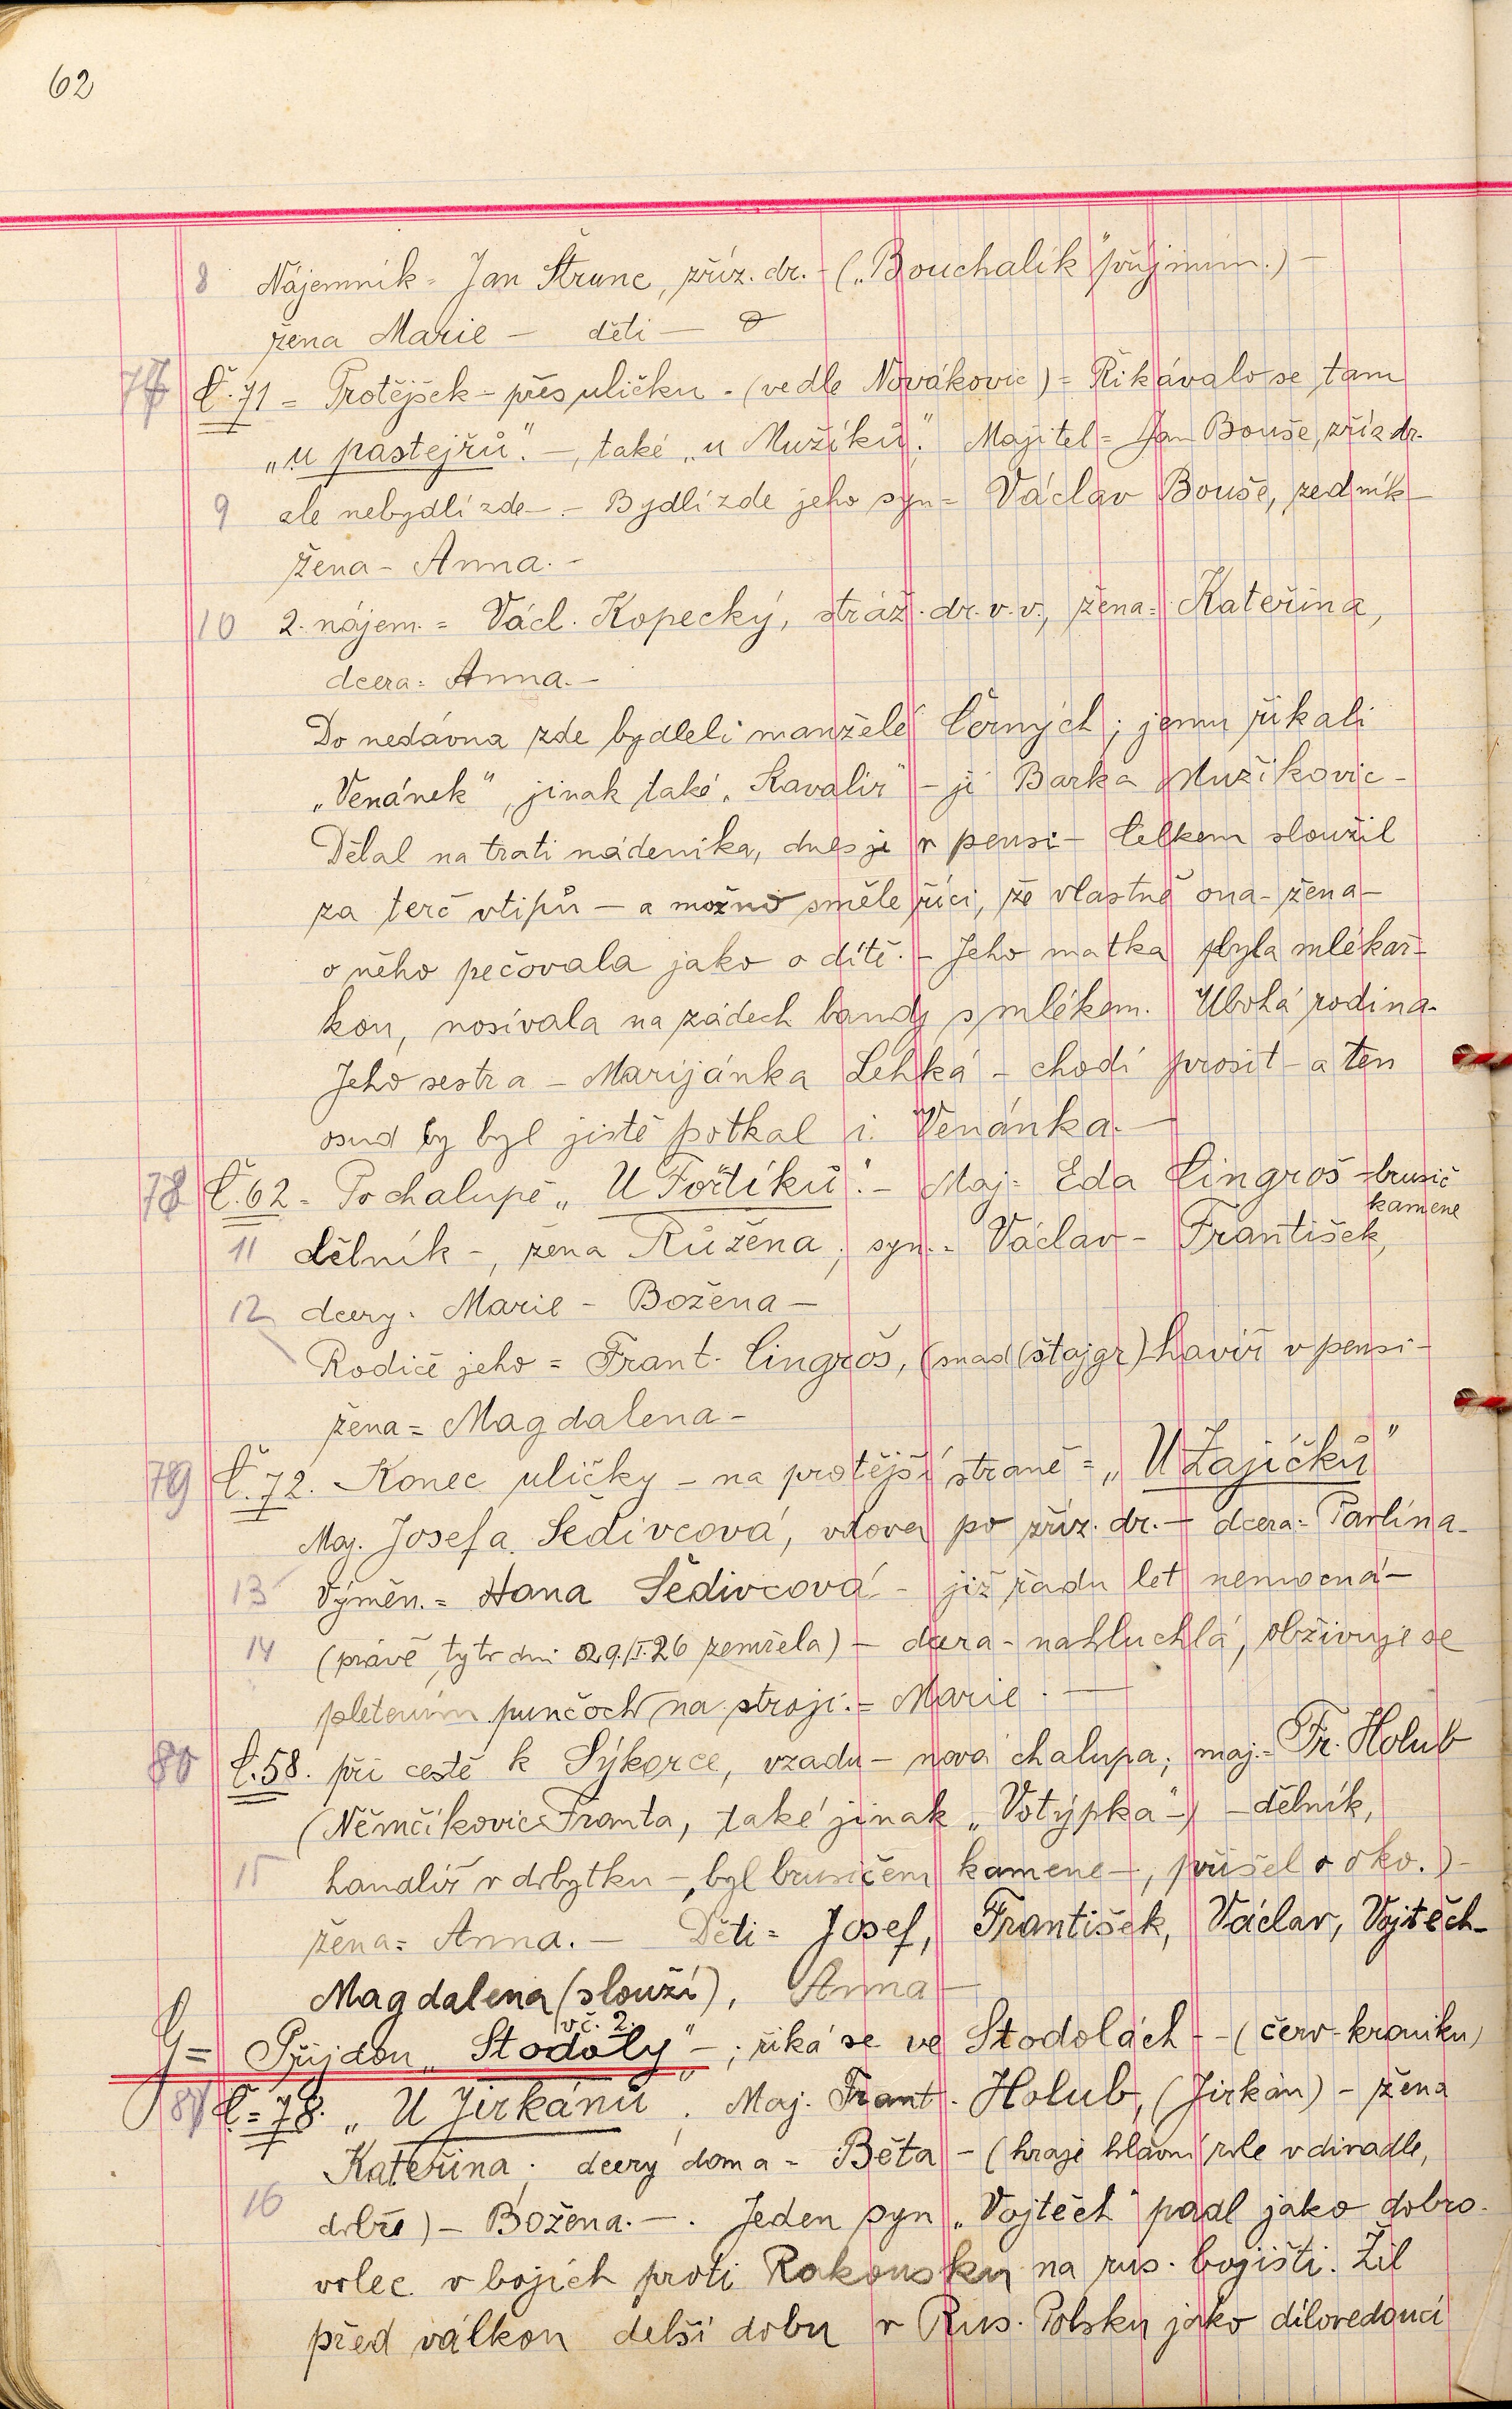 62
8 Nájemník = Jan Štrunc, zříz. dr. - („Bouchalík" příjmím.) -
žena Marie - děti - 0
77 Č. 71 = Protějšek - přes uličku - (vedle Novákovic) = Říkávalo se tam
„u pastejřů". -, také „u Mužíků". Majitel = Jan Bouše, zříz dr.
9 ale nebydlí zde - . - Bydlí zde jeho syn = Václav Bouše, zedník -
žena - Anna. -
10 2. nájem. = Václ. Kopecký, stráž. dr. v. v., žena = Kateřina,
dcera = Anna. -
Do nedávna zde bydleli manželé Černých; jemu říkali
„Venánek", jinak také „Kavalír" - jí Barka Mužíkovic -
Dělal na trati nádeníka, dnes je v pensi - Celkem sloužil
za terč vtipů - a možno směle říci, že vlastně ona - žena -
o něho pečovala jako o dítě. - Jeho matka byla mlékař-
kou, nosívala na zádech bandy s mlékem. Ubohá rodina -
Jeho sestra - Marijánka Lehká - chodí prosit - a ten
osud by byl jistě potkal i Venánka. -
78 Č. 62 = Po chalupě „U Fořtíků". - Maj = Eda Cingroš = brusič
kamene
11 dělník -, žena Růžena; syn. = Václav - František,
12 dcery. Marie - Božena -
Rodiče jeho = Frant. Cingroš, (snad (štajgr) havíř v pensi -
žena = Magdalena -
79 Č. 72. Konec uličky - na protější straně = „U Zajíčků"
Maj. Josefa Šedivcová, vdova po zříz. dr. - dcera = Pavlína -
13 Výměn. = Hana Šedivcová - již řadu let nemocná -
14 (právě tyto dni 29./I. 26 zemřela) - dcera - nahluchlá, obživuje se
pletením punčoch na stroji. = Marie. -
80 Č. 58. při cestě k Sýkorce, vzadu - nová chalupa; maj. = Fr. Holub
(Němčíkovic Franta, také jinak „Votýpka" -) - dělník,
15 handlíř v dobytku -, byl brusičem kamene -, přišel o oko.) -
žena = Anna. - Děti = Josef, František, Václav, Vojtěch -
Magdalena (slouží), Anna -
v č. 2.
G = Přijdou „Stodoly" - ; říká se ve Stodolách - - (červ. kroniku)
81 Č = 78. „U Jirkánů", Maj. Frant. Holub, (Jirkán) - žena
Kateřina; dcery doma = Běta - (hraje hlavní role v divadle,
16 dobře) - Božena. - . Jeden syn „Vojtěch" padl jako dobro-
volec v bojích proti Rakousku na rus. bojišti. Žil
před válkou delší dobu v Rus. Polsku jako dílovedoucí